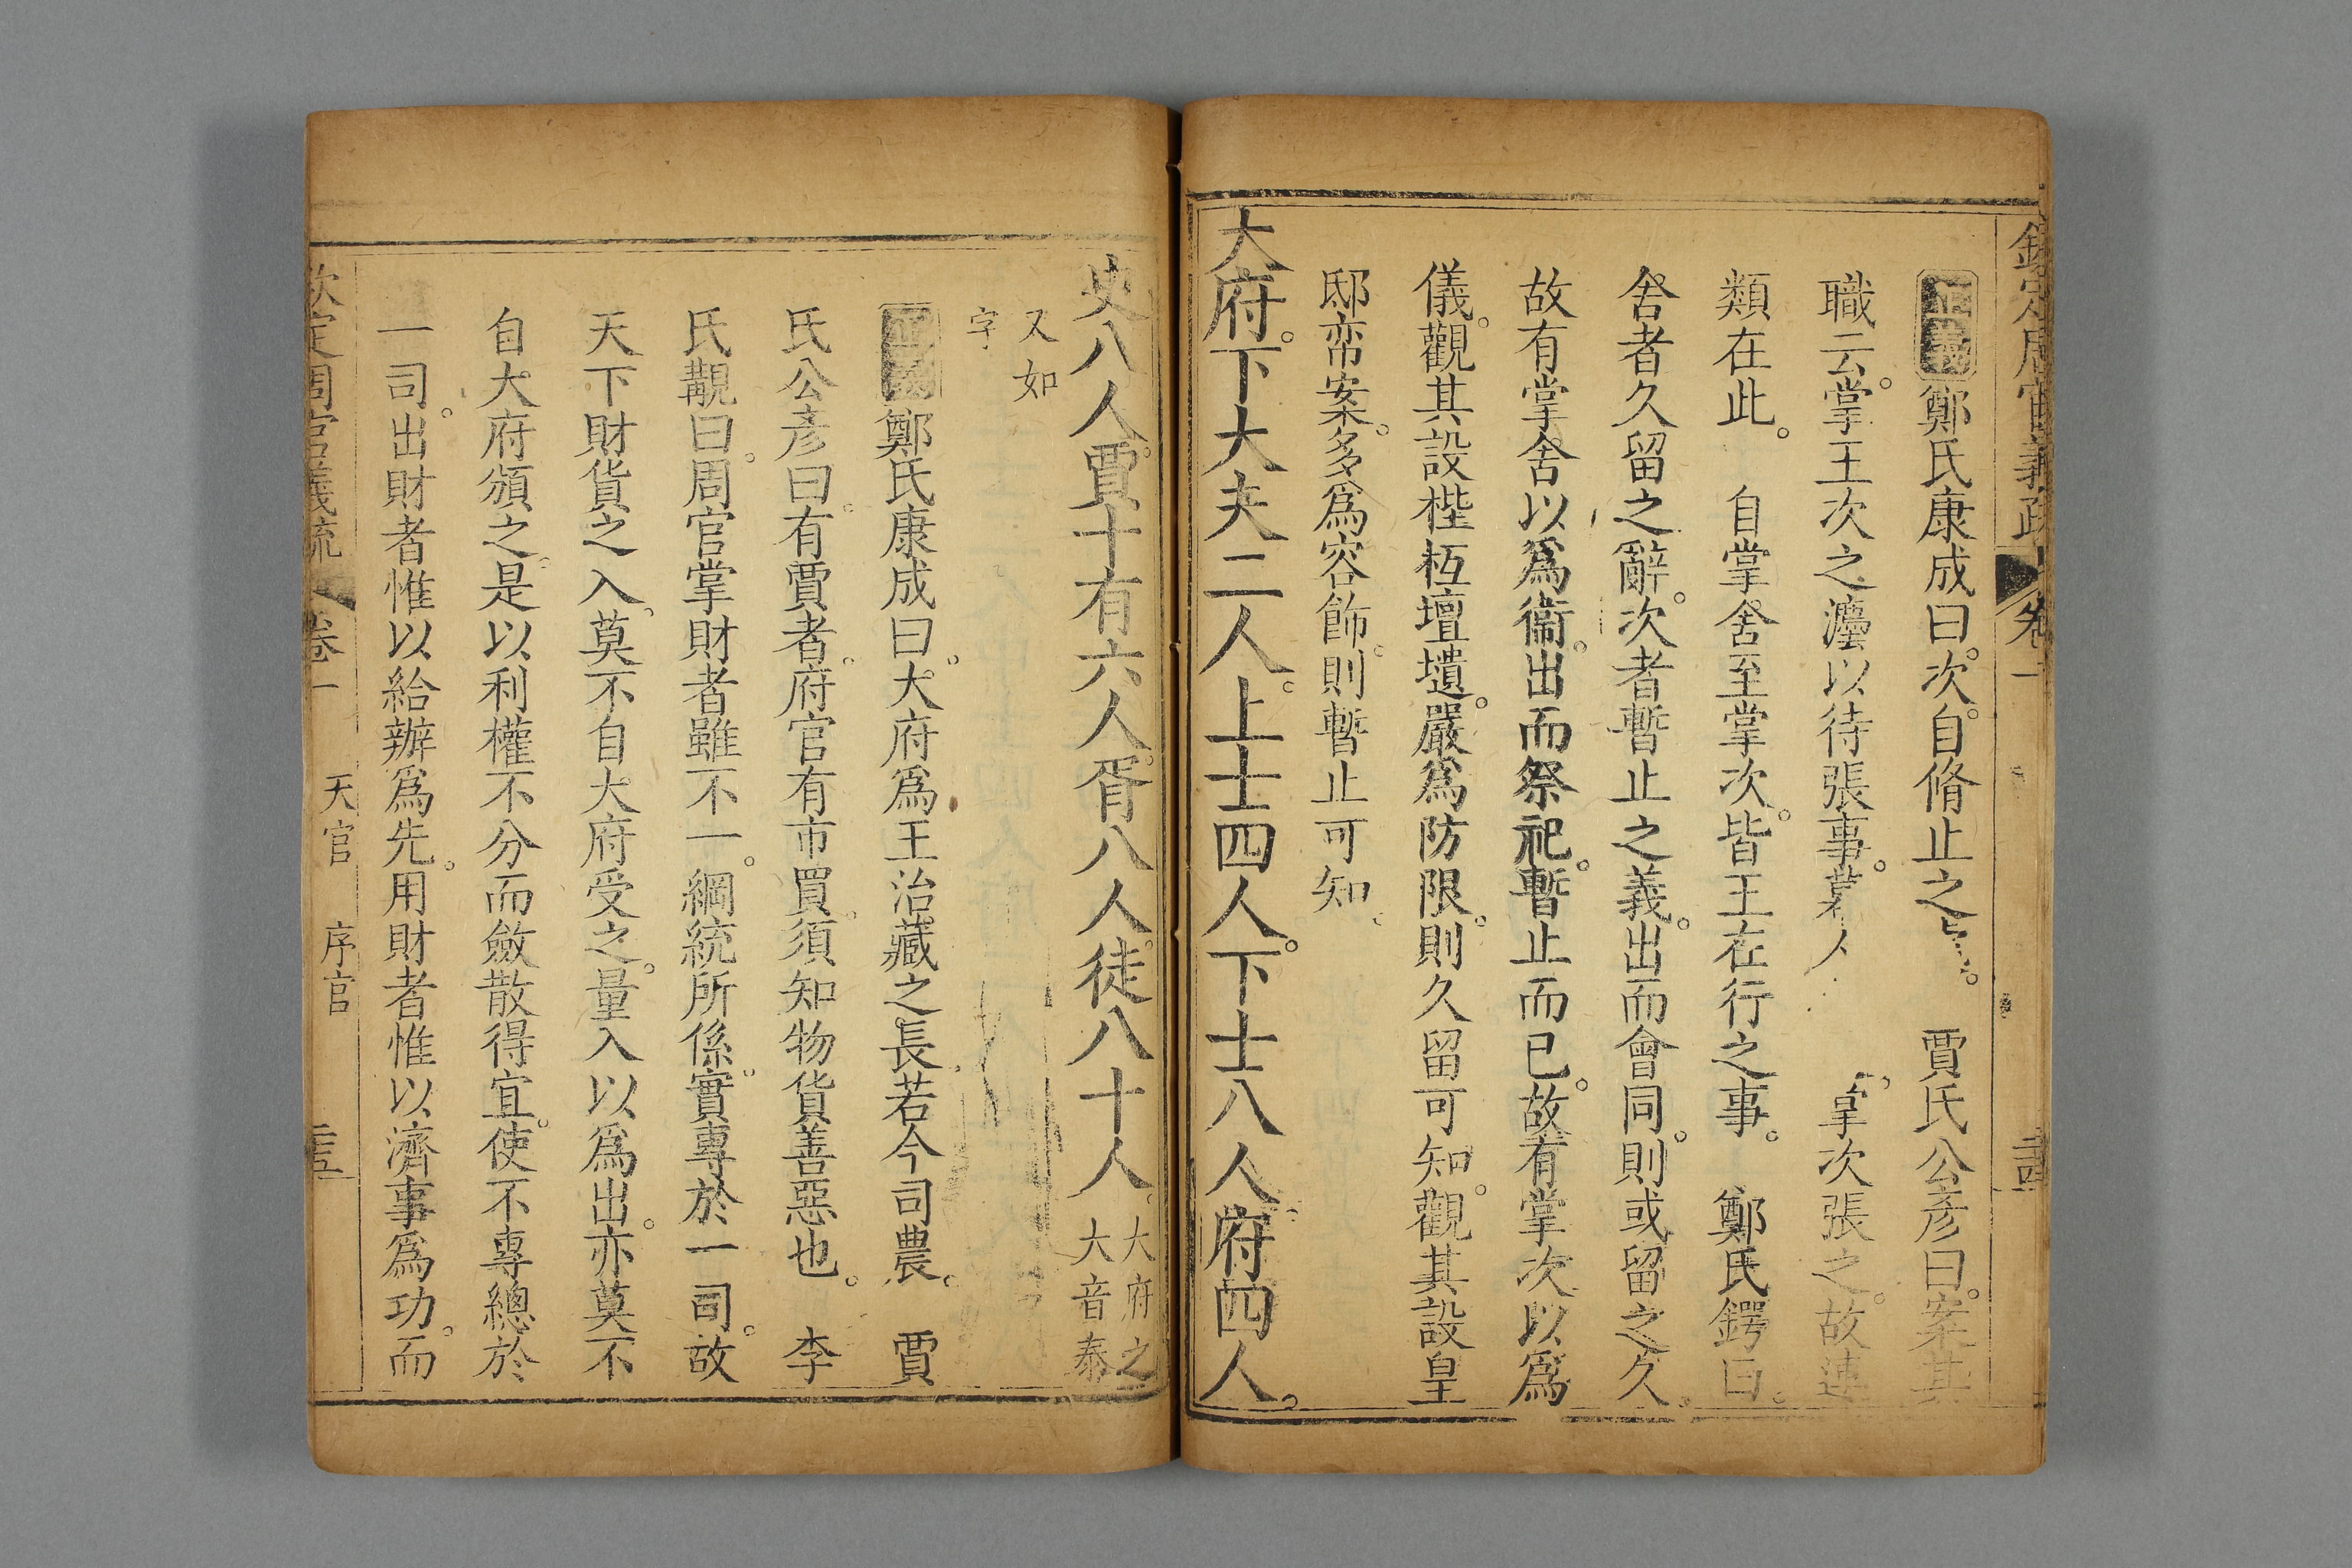 欽定周官義疏 卷一
正義鄭氏康成曰。次。自脩止之。 賈氏公彥曰。案其
職云。掌王次之灋以待張事。幕人 掌次張之。故連
類在此。 自掌舍至掌次。皆王在行之事。 鄭氏鍔曰。
舍者久留之辭。次者暫止之義。出而會同。則或留之久。
故有掌舍以爲衞。出而祭祀。暫止而已。故有掌次以爲
儀。觀其設梐枑壇壝。嚴爲防限。則久留可知。觀其設皇
邸帟案。多爲容飾。則暫止可知。
大府。下大夫二人。上士四人。下士八人。府四人。
史八人。賈十有六人。胥八人。徒八十人。大府之
大音泰
又如
字
正義鄭氏康成曰。大府爲王治藏之長。若今司農。 賈
氏公彥曰。有賈者。府官有市買。須知物貨善惡也。 李
氏覯曰。周官掌財者雖不一。綱統所係。實專於一司。故
天下財貨之入。莫不自大府受之。量入以爲出。亦莫不
自大府頒之。是以利權不分而斂散得宜。使不專總於
一司。出財者惟以給辦爲先。用財者惟以濟事爲功。而
欽定周官義疏 卷一 天官 序官